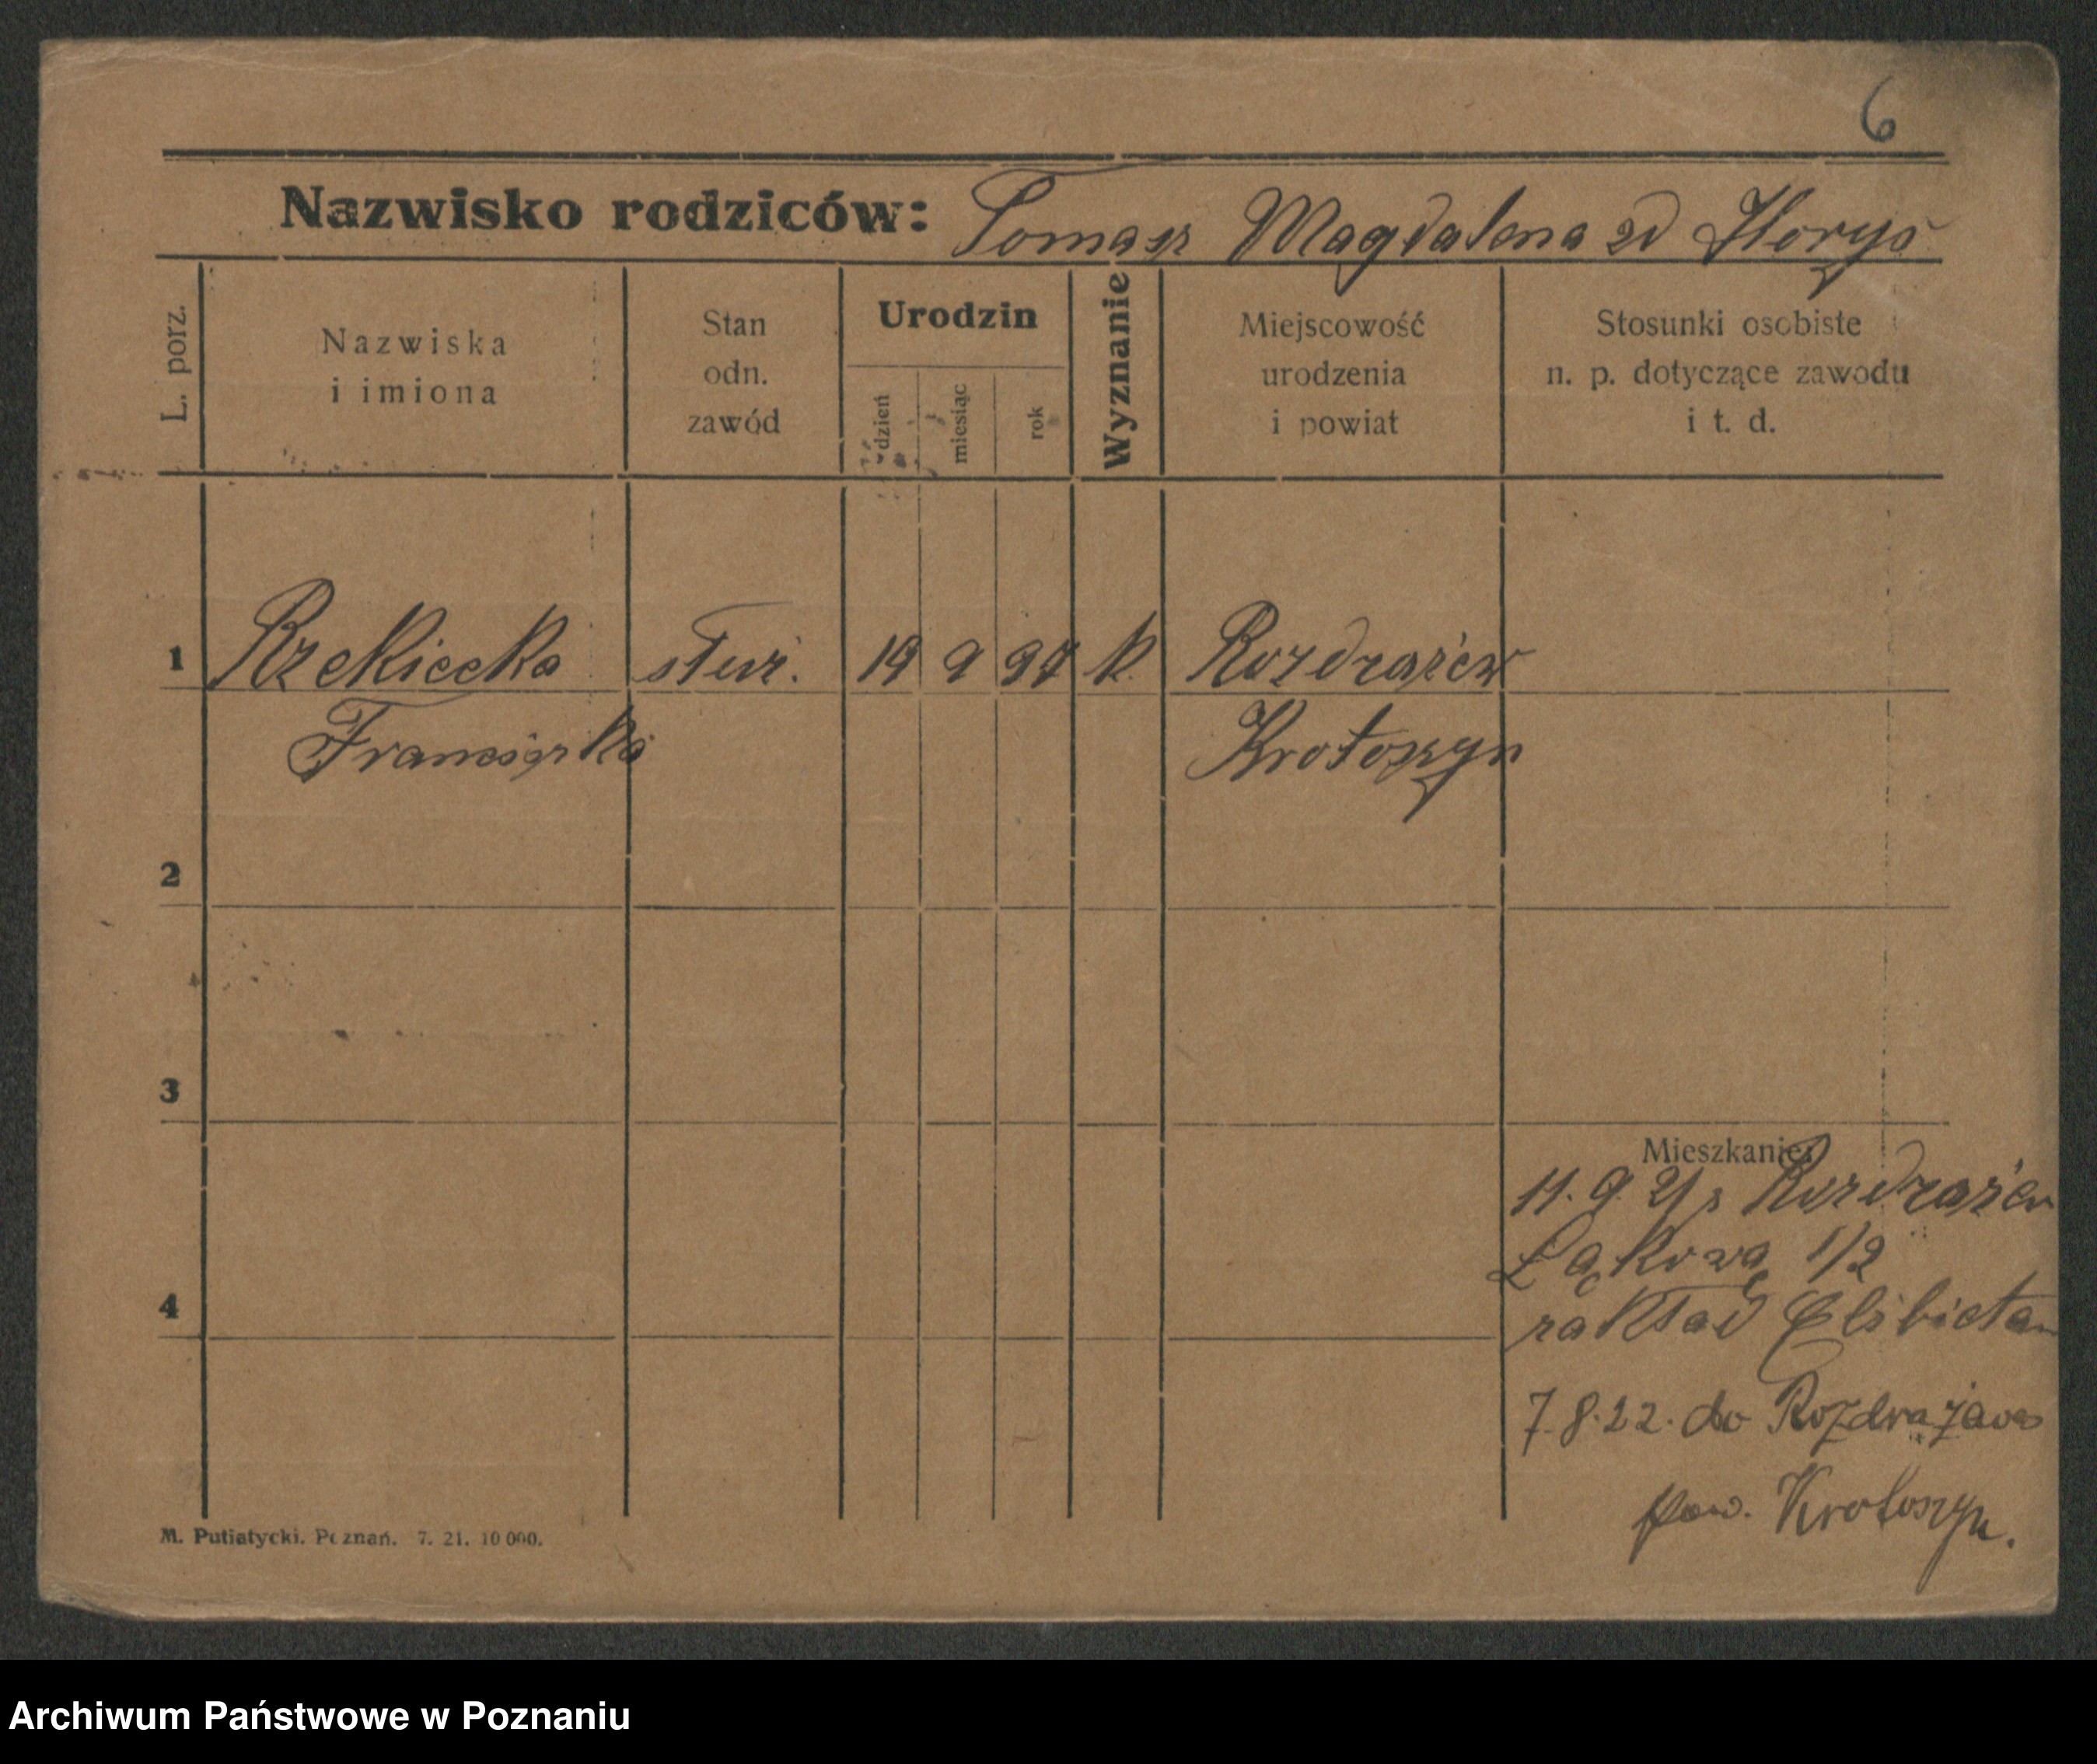 6
Nazwisko rodziców: Tomasz Magdalena zd
L. porz.
Nazwiska
i imiona
Stan
odn.
zawód
Urodzin
dzień
miesiąc
rok
Wyznanie
Miejscowość
urodzenia
i powiat
Stosunki osobiste
n. p. dotyczące zawodu
i t. d.
1 Rzekiecka służ. 19 9 97 k. Rozdrażew
Franciszka Krotoszyn
2
3
Mieszkanie:
11. 9. 21 z Rozdrażew
Łąkowa 1/2
4
zakład Elżbietan
7.8.22. do Rozdrażewa
pow. Krotoszyn.
M. Putiatycki. Poznań. 7. 21. 10 000.
Archiwum Państwowe w Poznaniu